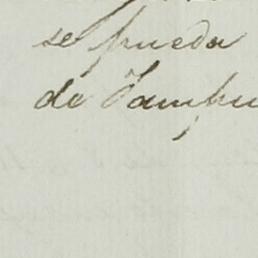 se pueda
de Tampu